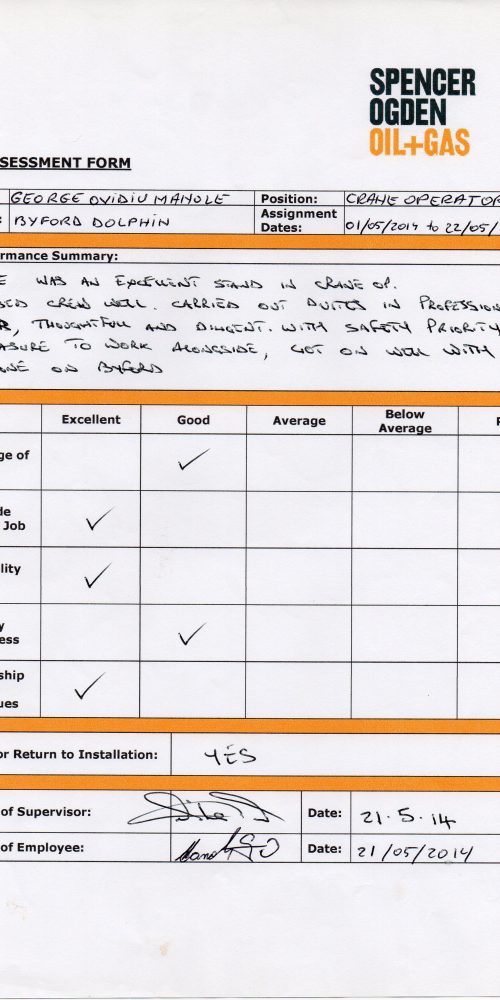 SPENCER
OGDEN
OIL+GAS
SESSMENT FORM
GEORGE OVIDIU MANOLE Position: CRANE OPERATOR
: BYFORD DOLPHIN Assignment Dates: 01/05/2014 to 22/05/
rmance Summary:
E WAS AN EXCELLENT STAND IN CRANE OP.
SED CREW WELL. CARRIED OUT DUTIES IN PROFESSION
R, THOUGHTFULL AND DILIGENT. WITH SAFETY PRIORITY
ASURE TO WORK ALONGSIDE, GOT ON WELL WITH
ONE ON BYFORD
Excellent Good Average Below Average
ge of
de
Job
lity
y
ess
ship
ues
or Return to Installation: YES
of Supervisor: Date: 21.5.14
of Employee: Date: 21/05/2014